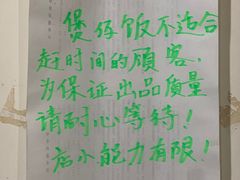 煲仔饭不适合
赶时间的顾客,
为保证出品质量
请耐心等待!
店小能力有限!